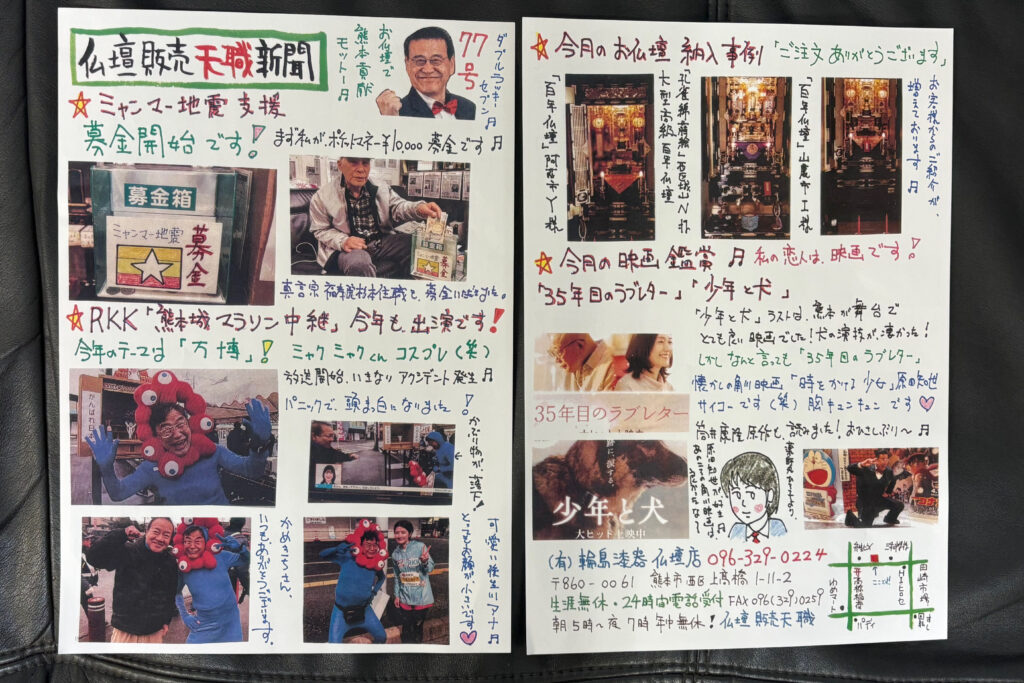 仏壇販売天職新聞
お仏壇で
熊本貢献
モットー♬
77号
ダブルラッキー
セブン♬
☆ミャンマー地震支援
募金開始です!
まず私が、ポケットマネー¥10,000募金です♬
募金箱
ミャンマー地震
募金
募金箱
募金
☆RKK「熊本城マラソン中継」今年も、出演です!
今年のテーマは「万博」! ミャクミャクくんコスプレ(笑)
放送開始、いきなりアクシデント発生♬
パニックで、頭まっ白になりました!
かぶり物が、落下!
がんばれ日
かめきちさん、
いつもありがとうございます。
可愛い後生川アナ♬
とってもお顔が小さいです
☆今月のお仏壇 納入事例 「ご注文ありがとうございます」
「百年仏壇」阿蘇市Y様
大型高級百年仏壇
「百年仏壇」山鹿市I様
お客様からのご紹介が、
増えております♬
☆今月の映画鑑賞♬ 私の恋人は、映画です!
「35年目のラブレター」「少年と犬」
「少年と犬」ラストは、熊本が舞台で
とても良い映画でした!犬の演技が、凄かった!
しかしなんと言っても「35年目のラブレター」
懐かしの角川映画「時をかける少女」原田知世
サイコーです(笑)胸キュンキュンです
筒井康隆原作も、読みました!おひさしぶり〜♬
35年目のラブレター
大ヒット上映中
少年と犬
大ヒット上映中
(有)輪島漆器仏壇店 096-329-0224
〒860-0061 熊本市西区上高橋1-11-2
生涯無休・24時間電話受付 FAX096(329)0259
朝5時〜夜7時年中無休!仏壇販売天職
ここです
田崎市場
高橋稲荷
パディ